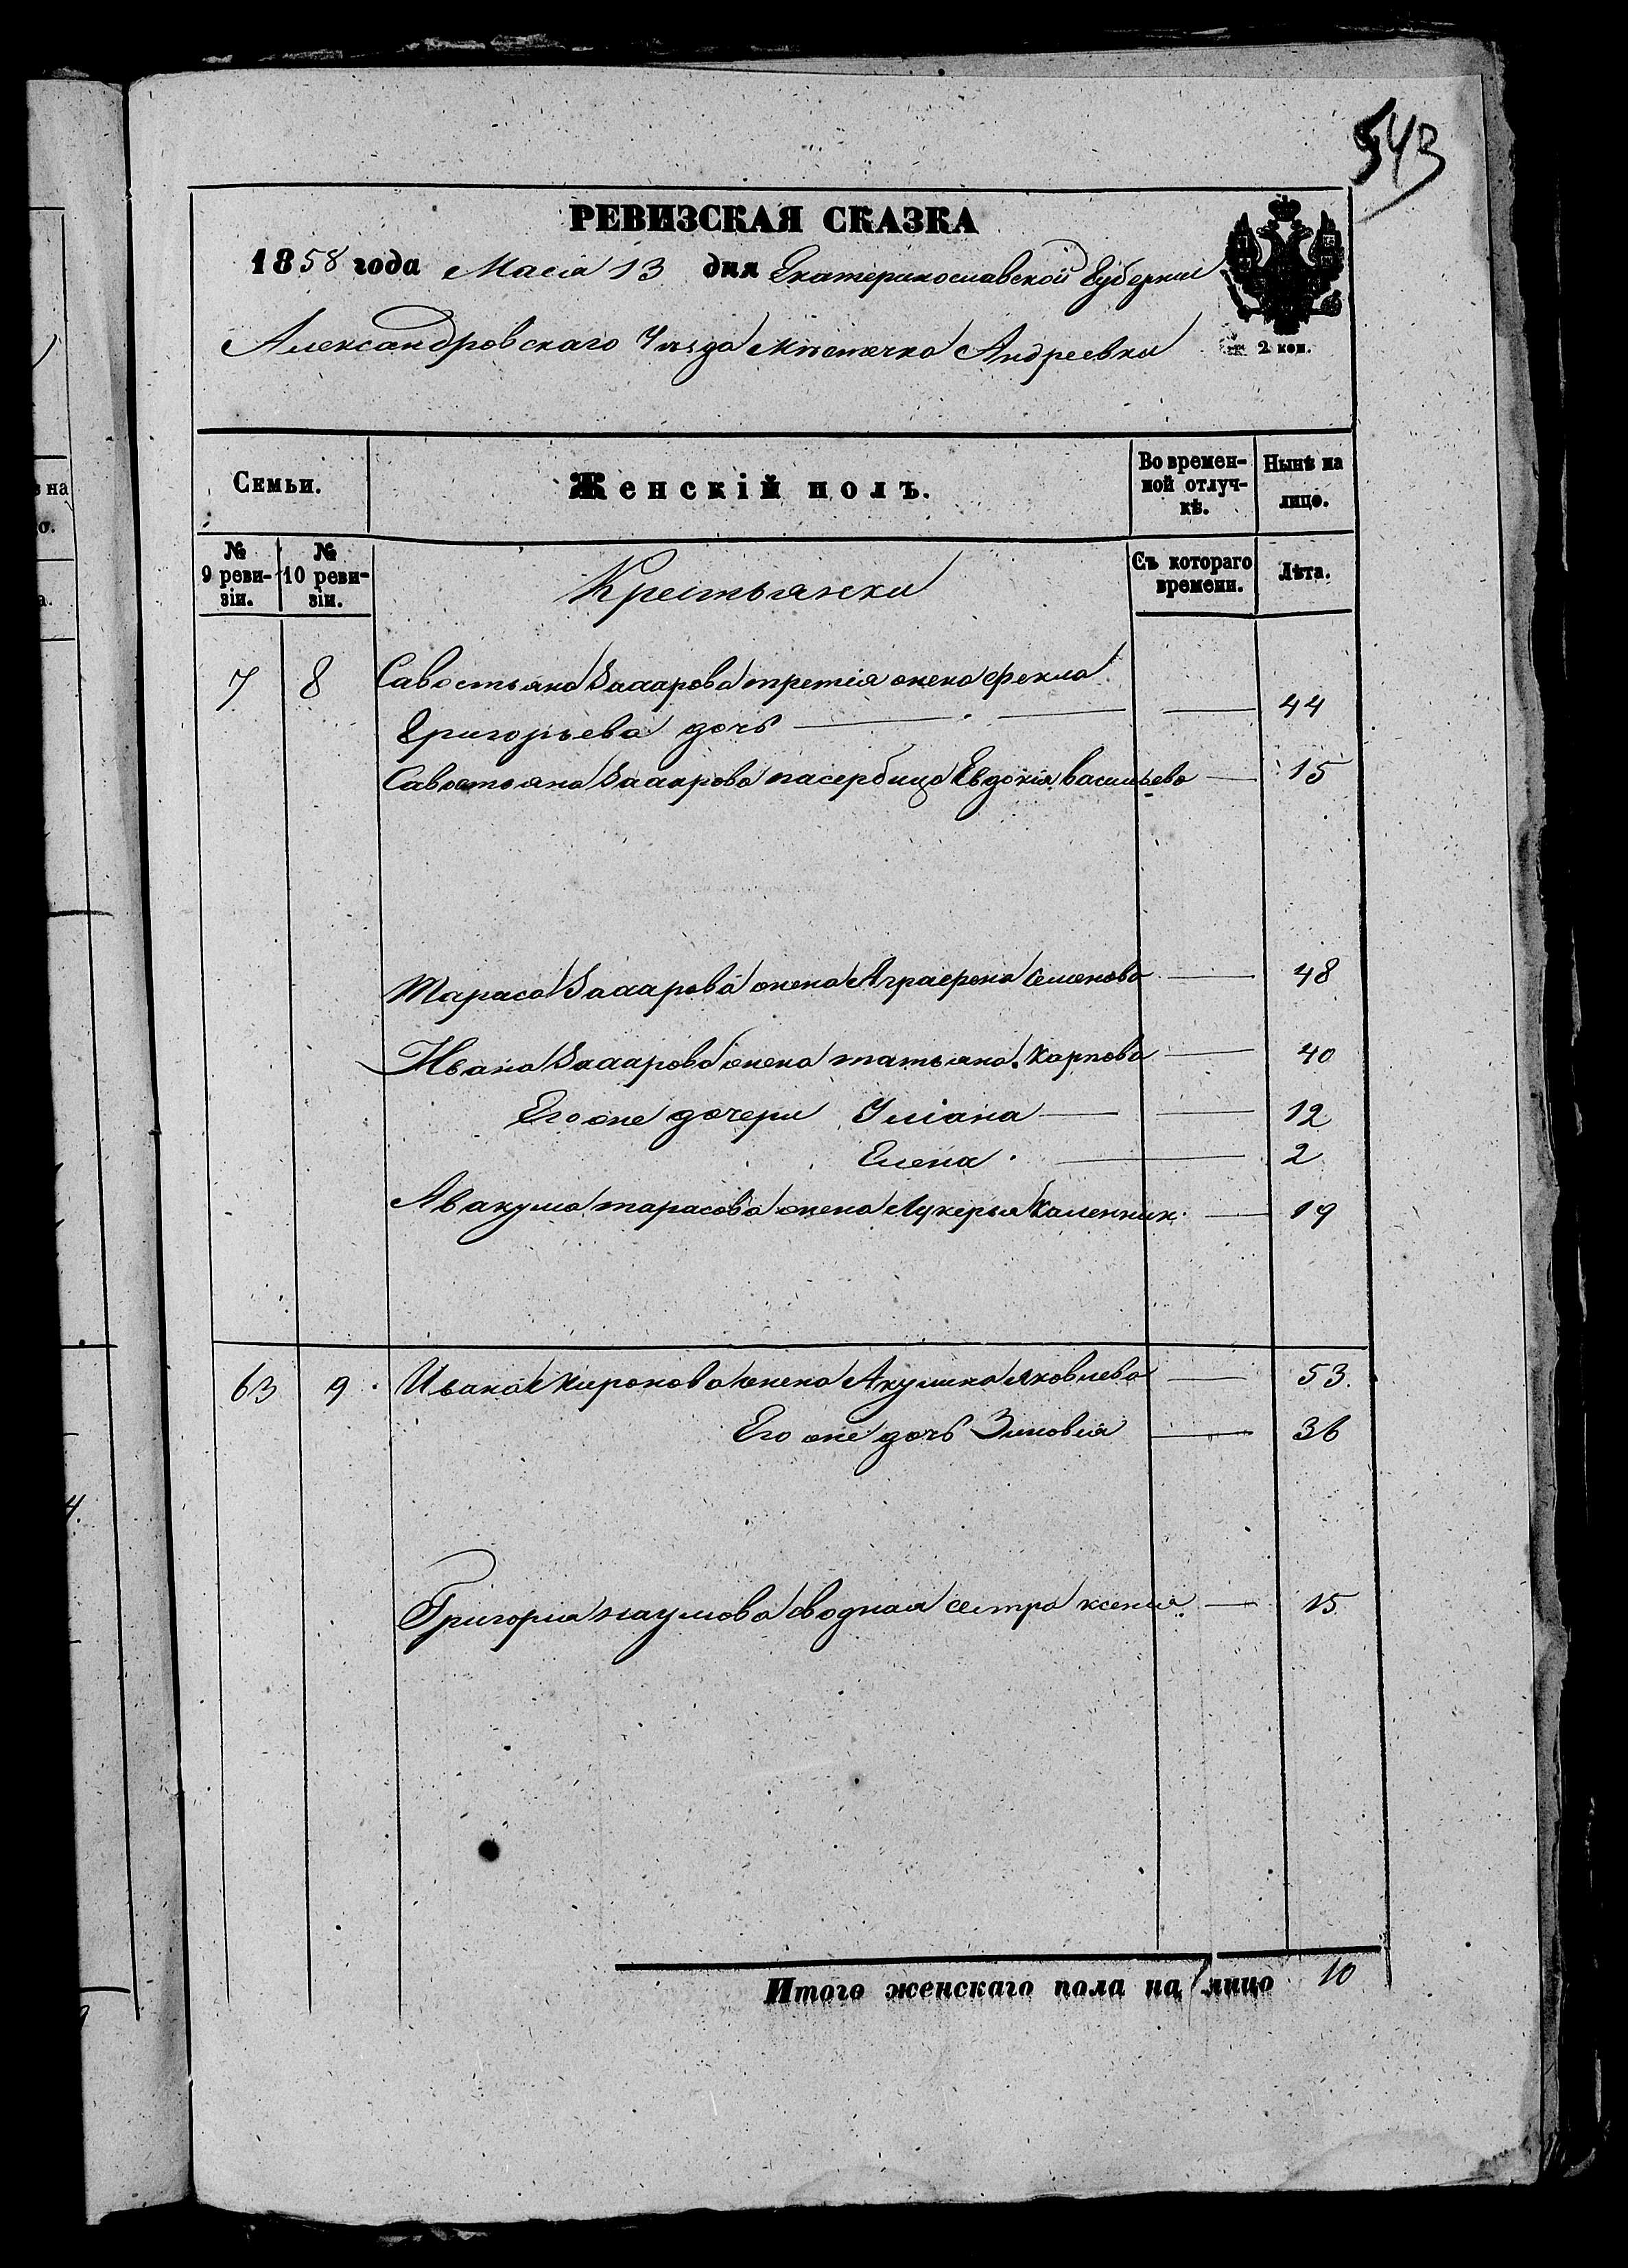 543
РЕВИЗСКАЯ СКАЗКА
1858 года Маія 13 дня Екатеринославской Губерніи
Александровскаго Уѣзда Мѣстечка Андреевки
2 коп.
Семьи.
Женскій полъ.
Во времен-
ной отлуч-
кѣ.
Нынѣ на
лицо.
№
9 реви-
зіи.
№
10 реви-
зіи.
Крестьянки
Съ котораго
времени.
Лѣта.
7 8 Савостьяна Захарова третія жена Фекла
Григорьева дочь 44
Савостьяна Захарова пасербица Евдокія Васильева 15
Тараса Захарова жена Аграфена Семенова 48
Ивана Захарова жена Татьяна Карпова 40
Его же дочери Уліана 12
Елена 2
Авакума Тарасова жена Лукерья Каленник. 19
63 9 Ивана Миронова жена Акулина Яковлева 53
Его же дочь Зиновія 36
Григорія Наумова сводная сестра Ксенія 15
Итого женскаго пола на лицо 10